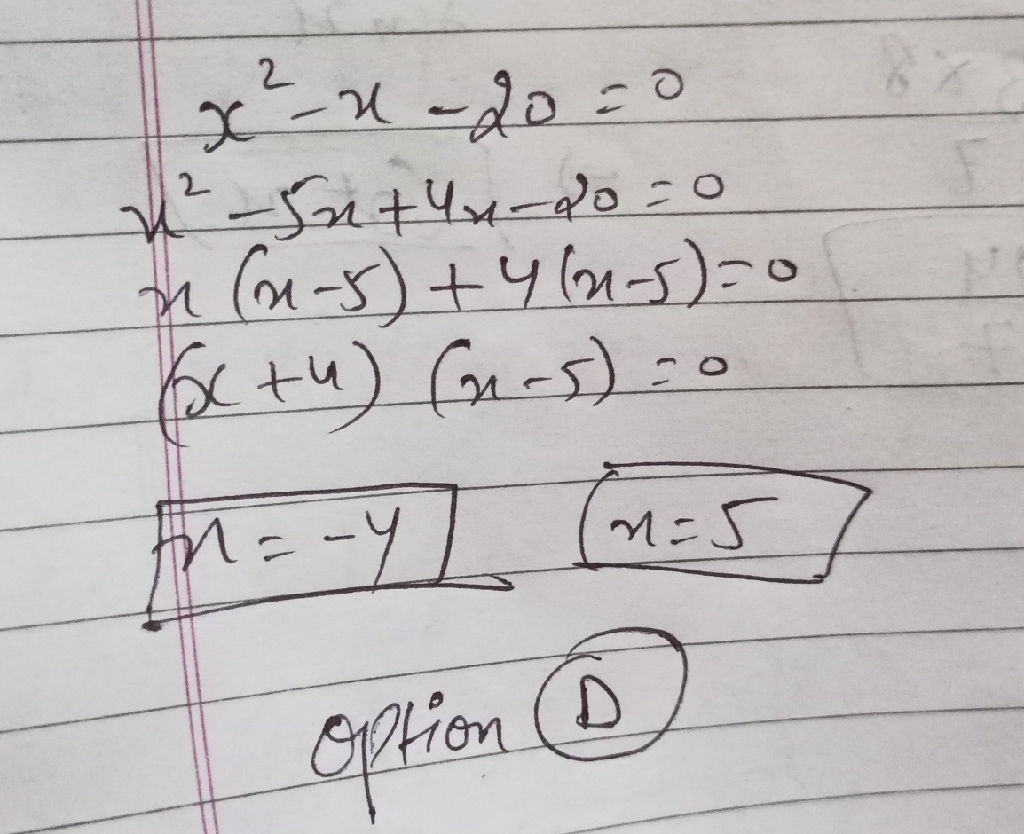 x² - x - 20 = 0
x² - 5x + 4x - 20 = 0
x (x-5) + 4 (x-5) = 0
(x + 4) (x - 5) = 0
x = -4 x = 5
option D